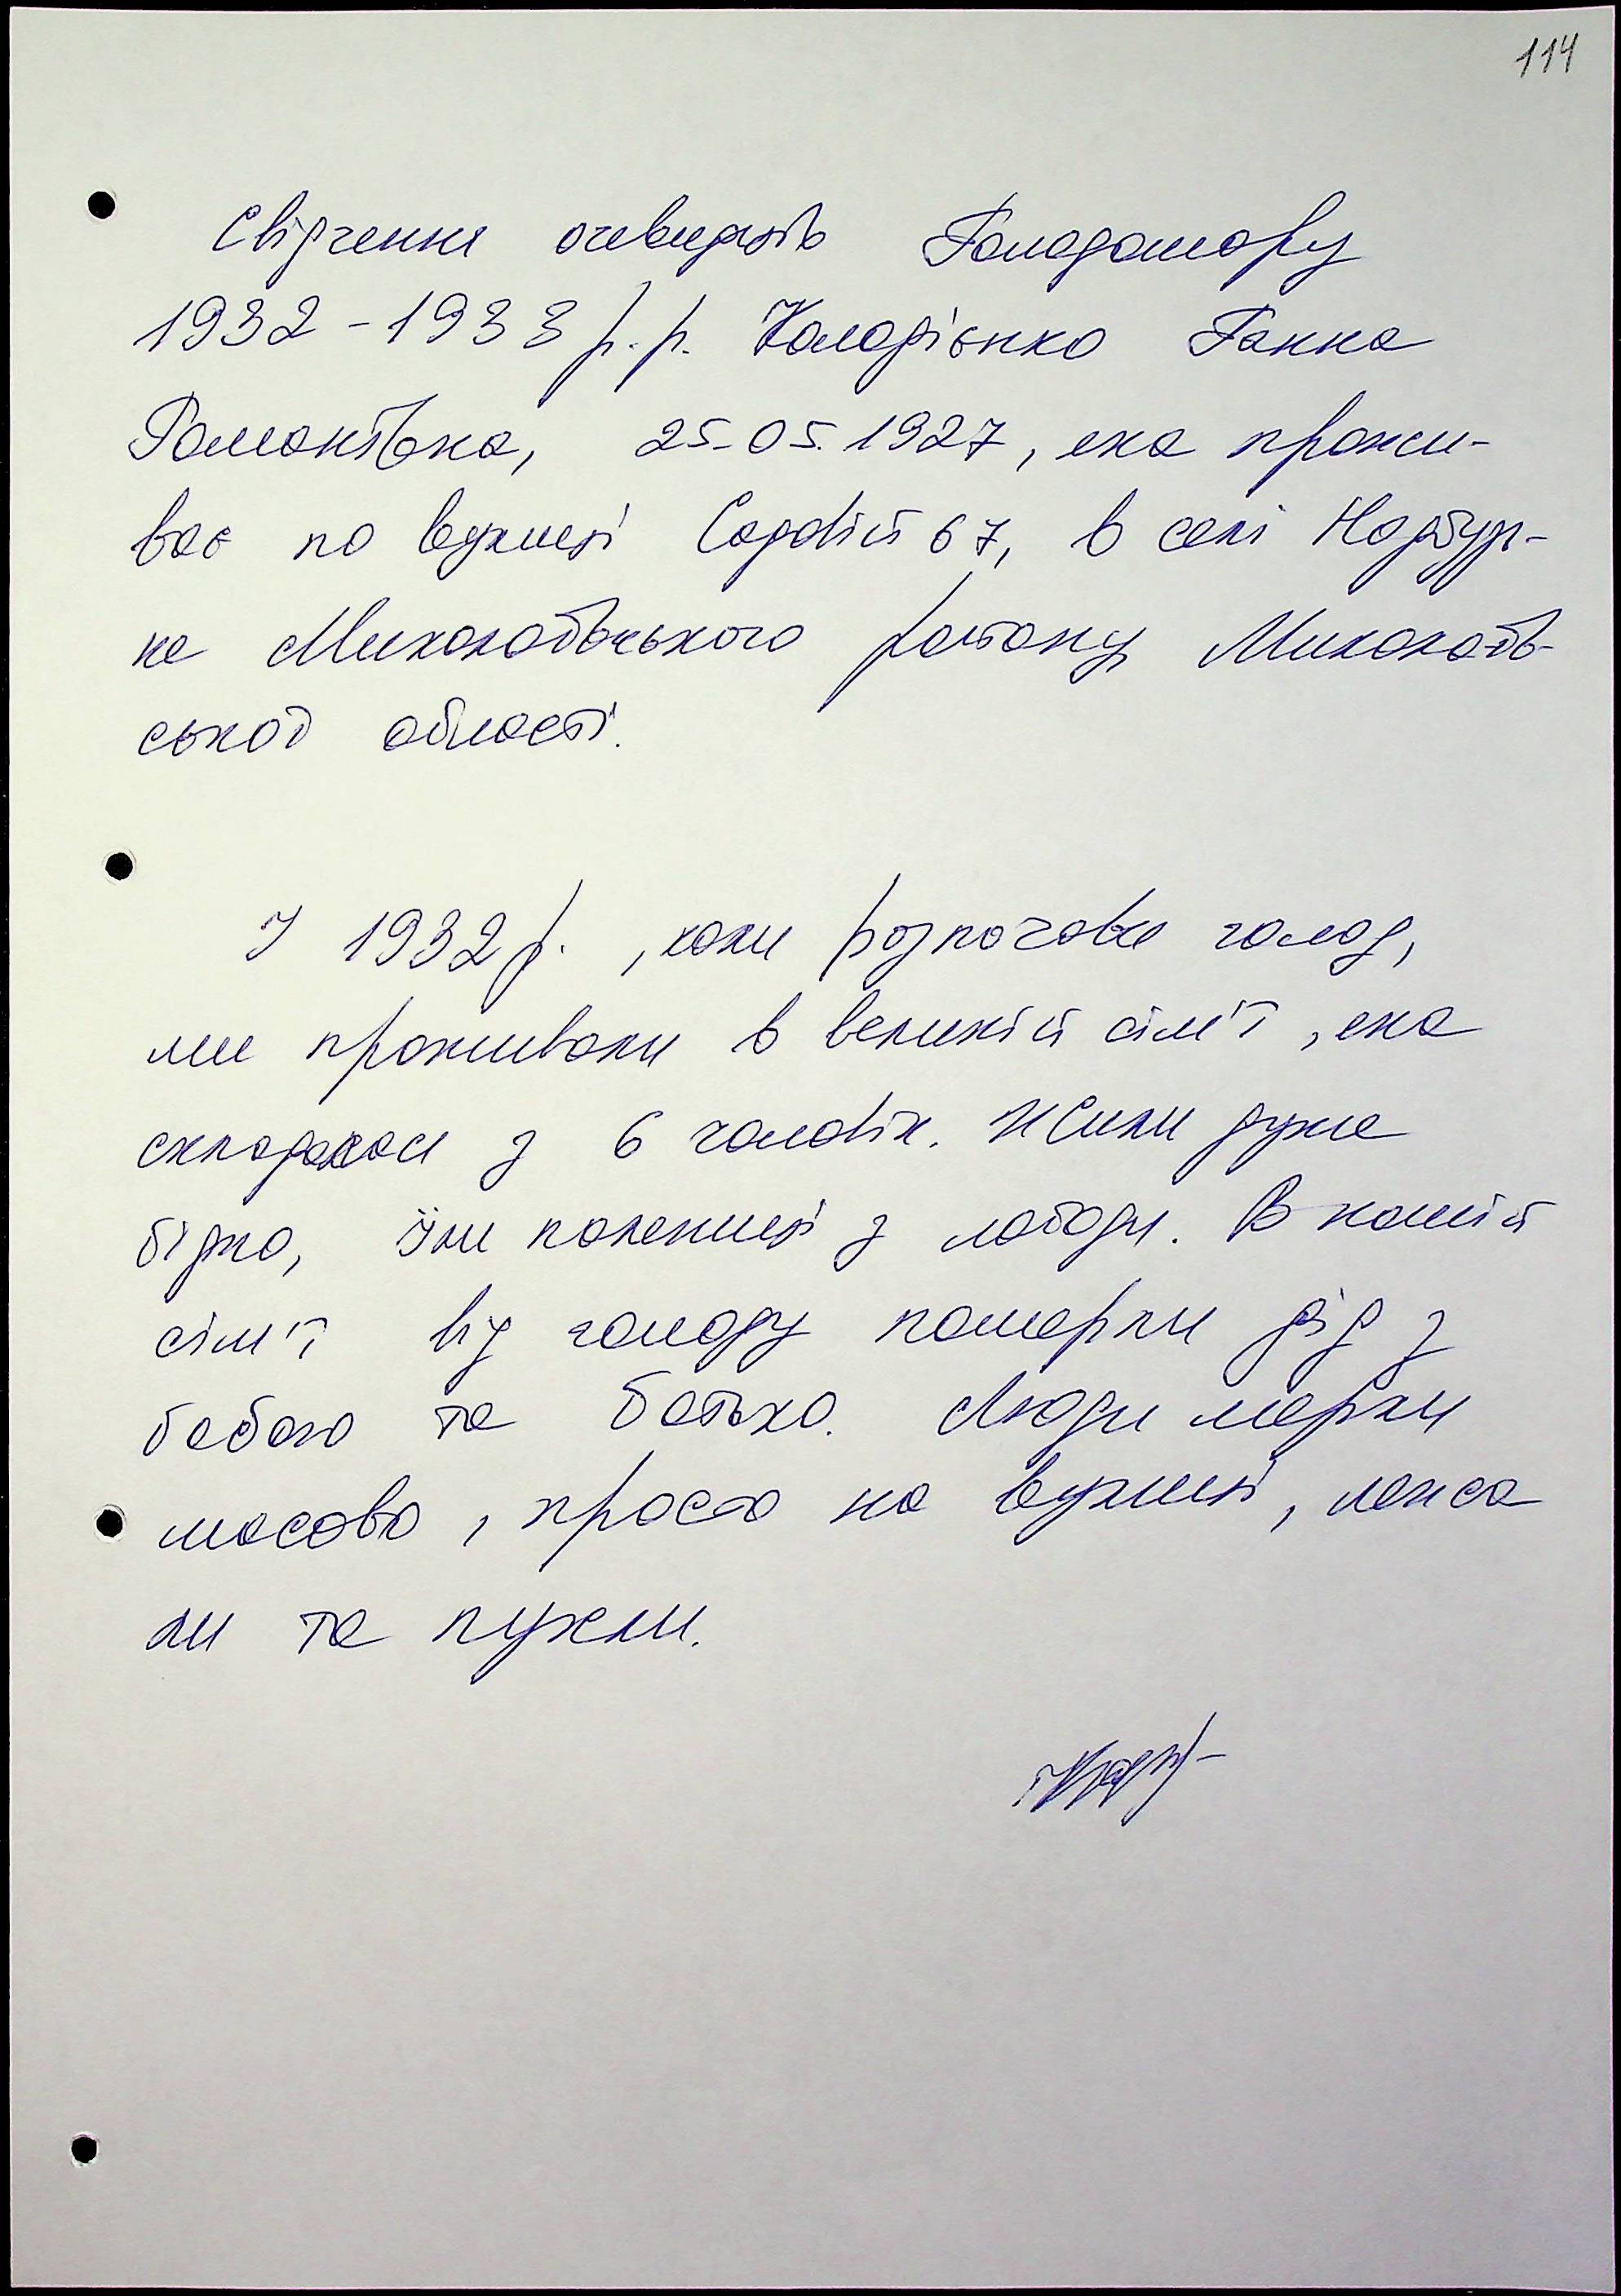 114
Свідчення очевидців Голодомору
1932-1933 р.р. Коларієнко Ганна
Романівна, 25.05.1927, яка прожи-
ває по вулиці Садовій 67, в селі Надбузь-
ке Миколаївського району Миколаїв-
ської області.
У 1932 р., коли розпочався голод,
ми проживали в великій сім'ї, яка
складалася з 6 чоловік. Жили дуже
бідно, їли паляниці з лободи. В нашій
сім'ї від голоду померли дід з
бабою та батько. Люди мерли
масово, просто на вулиці, лежа
ли та пухли.